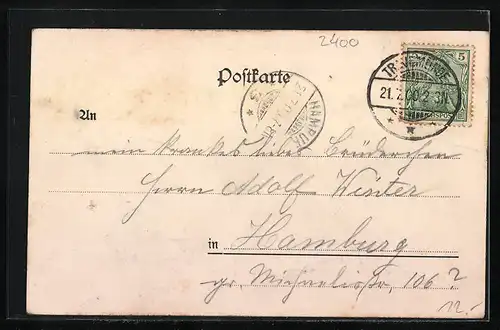 2400
5
TRAVEMÜNDE
21.7.00.2-3N.
Postkarte
HAMBURG
An
mein krankes liebes Brüderchen
Herrn Adolf Winter
in Hamburg
gr. Michaelisstr. 106?
12.-